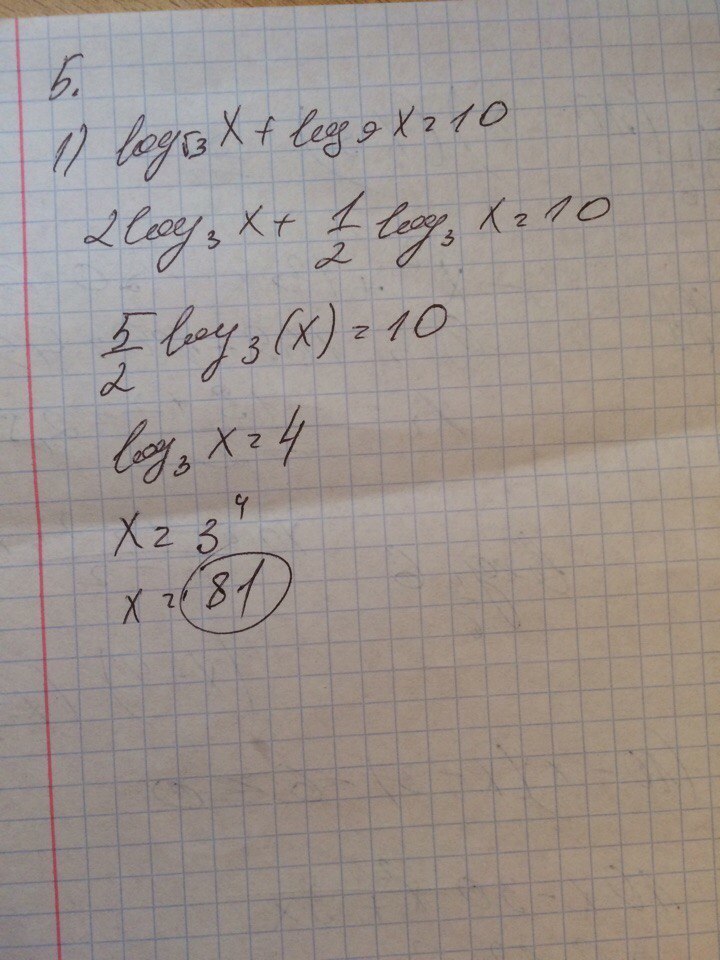 5.
1) log√3 x + log9 x = 10
2log3 x + 1/2 log3 x = 10
5/2 log3 (x) = 10
log3 x = 4
x = 3^4
x = 81